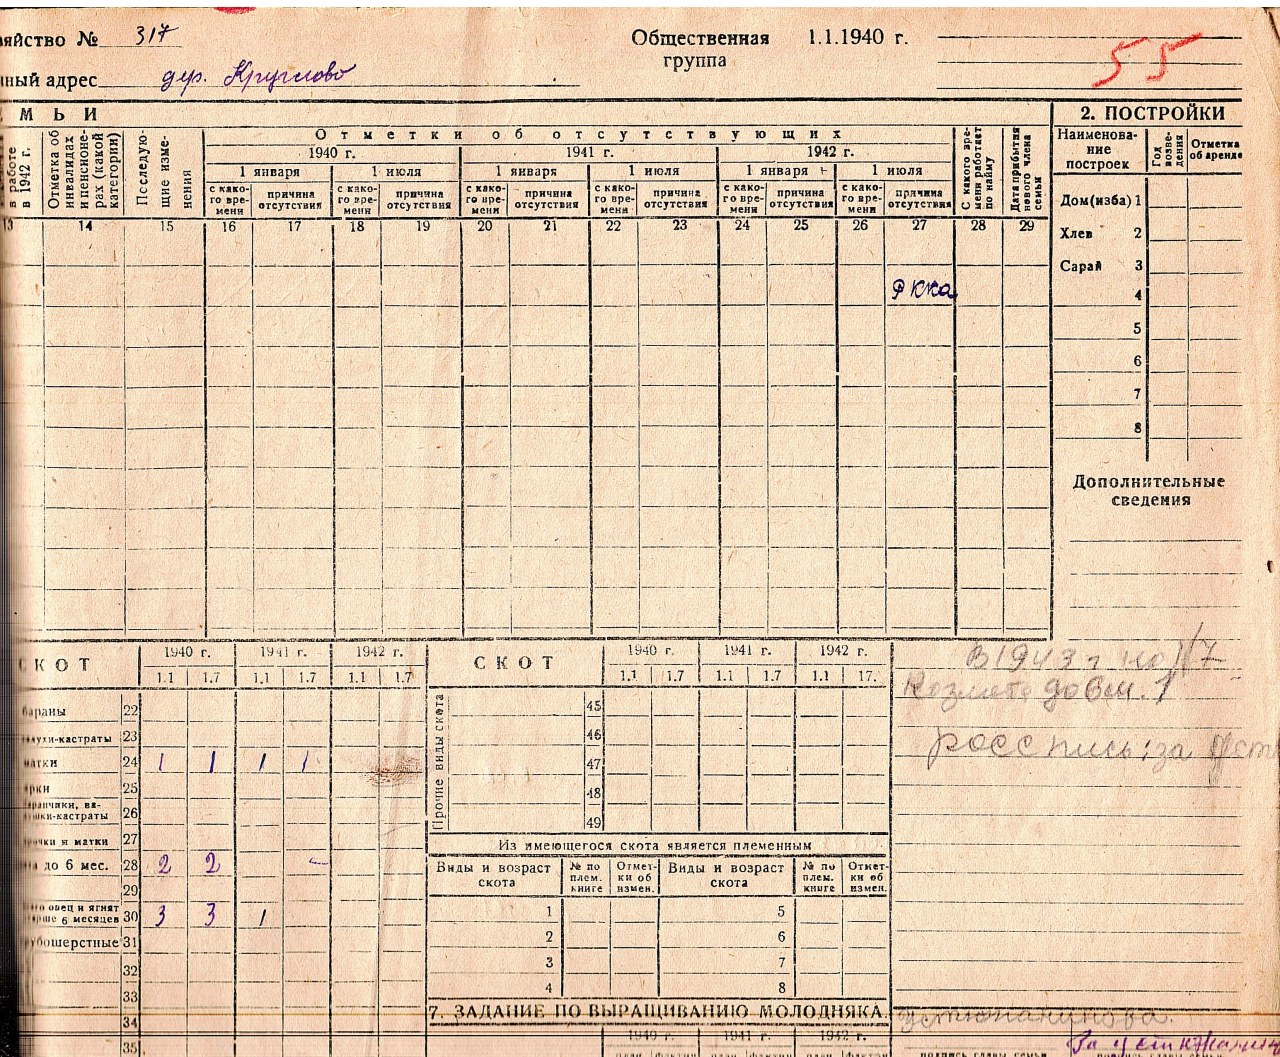 яйство № 317
Общественная группа 1.1.1940 г.
55
ный адрес дер. Круглово
МЬИ
Отметки об отсутствующих
в работе в 1942 г.
Отметка об инвалидах и пенсионерах (какой категории)
Последующие изменения
1940 г. 1941 г. 1942 г.
1 января 1 июля 1 января 1 июля 1 января 1 июля
с какого времени причина отсутствия с какого времени причина отсутствия с какого времени причина отсутствия с какого времени причина отсутствия с какого времени причина отсутствия с какого времени причина отсутствия
С какого времени работает по найму
Дата прибытия нового члена семьи
13 14 15 16 17 18 19 20 21 22 23 24 25 26 27 28 29
РККА
2. ПОСТРОЙКИ
Наименование построек Год возведения Отметка об аренде
Дом(изба) 1
Хлев 2
Сарай 3
4
5
6
7
8
Дополнительные сведения
СКОТ 1940 г. 1941 г. 1942 г.
1.1 1.7 1.1 1.7 1.1 1.7
бараны 22
-кастраты 23
матки 24 1 1 1 1
рки 25
-кастраты 26
и матки 27
до 6 мес. 28 2 2
29
овец и ягнят
6 месяцев 30 3 3 1
убошерстные 31
32
33
34
35
СКОТ 1940 г. 1941 г. 1942 г.
1.1 1.7 1.1 1.7 1.1 17.
Прочие виды скота
45
46
47
48
49
Из имеющегося скота является племенным
Виды и возраст скота № по плем. книге Отметки об измен. Виды и возраст скота № по плем. книге Отметки об измен.
1 5
2 6
3 7
4 8
7. ЗАДАНИЕ ПО ВЫРАЩИВАНИЮ МОЛОДНЯКА.
1940 г. 1941 г. 1942 г.
В 1943 г на 1/7
роспись: за
За